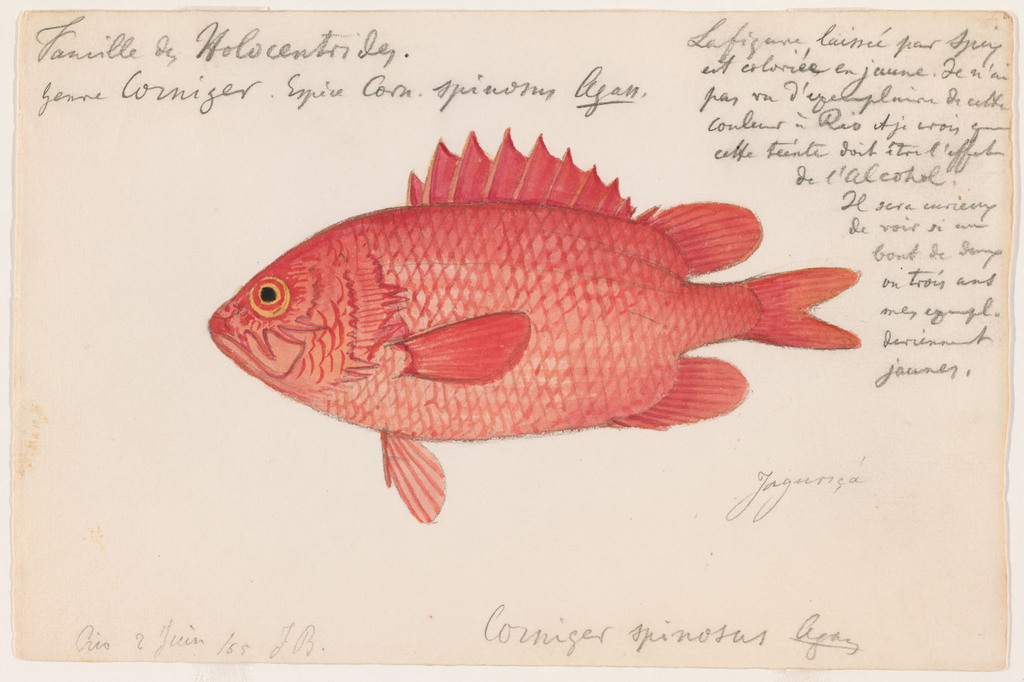 Famille des Holocentrides.
Genre Corniger. Espèce Corn. spinosus Agass.
La figure laissée par Spix
est coloriée en jaune. Je n'ai
pas vu d'exemplaire de cette
couleur à Rio et je crois que
cette teinte doit être l'effet
de l'Alcohol.
Il sera curieux
de voir si au
bout de deux
ou trois ans
mes exempl.
deviennent
jaunes.
Jaguriçá
Corniger spinosus Agass
Rio 2 Juin /65 J B.